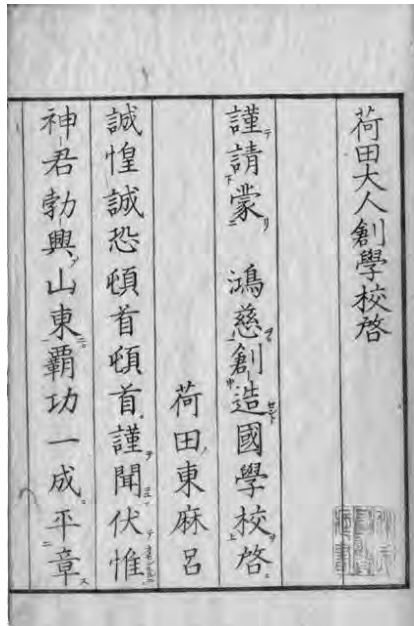 荷田大人創學校啓
謹請蒙 鴻慈創造國學校啓
荷田東麻呂
誠惶誠恐頓首頓首謹聞伏惟
神君勃興山東覇功一成平章